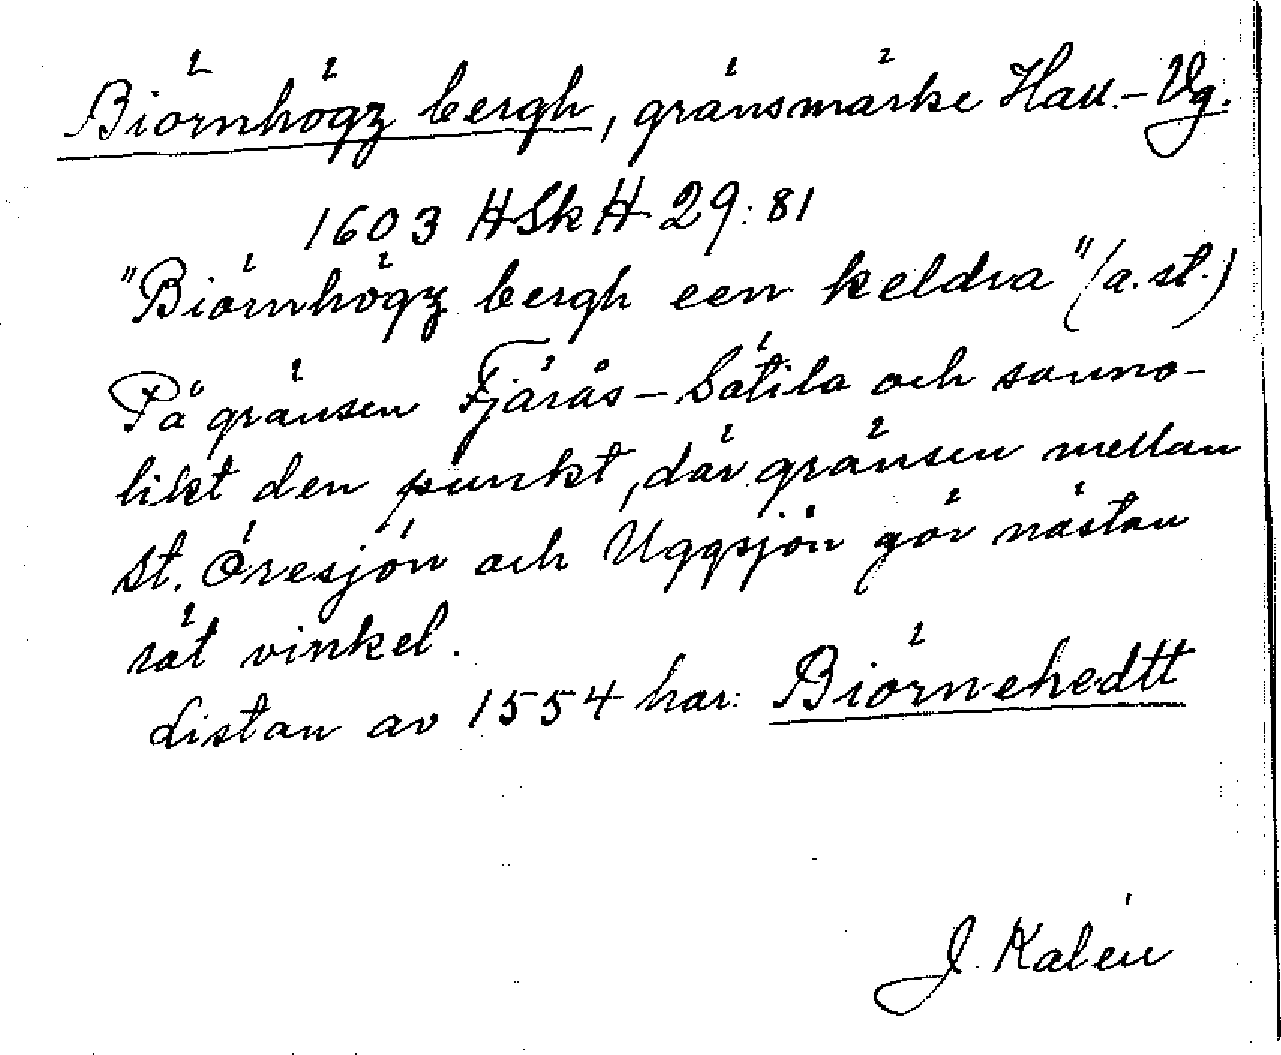 Biörnhögz bergh, gränsmärke Hall.-Vg.
1603 HSkH 29:81
"Biörnhögz bergh een keldra" (a. st.)
På gränsen Fjärås - Sätila och sanno-
likt den punkt, där gränsen mellan
St. Öresjön och Uggsjön gör nästan
rät vinkel.
Listan av 1554 har: Biörnehedtt
J. Kalén